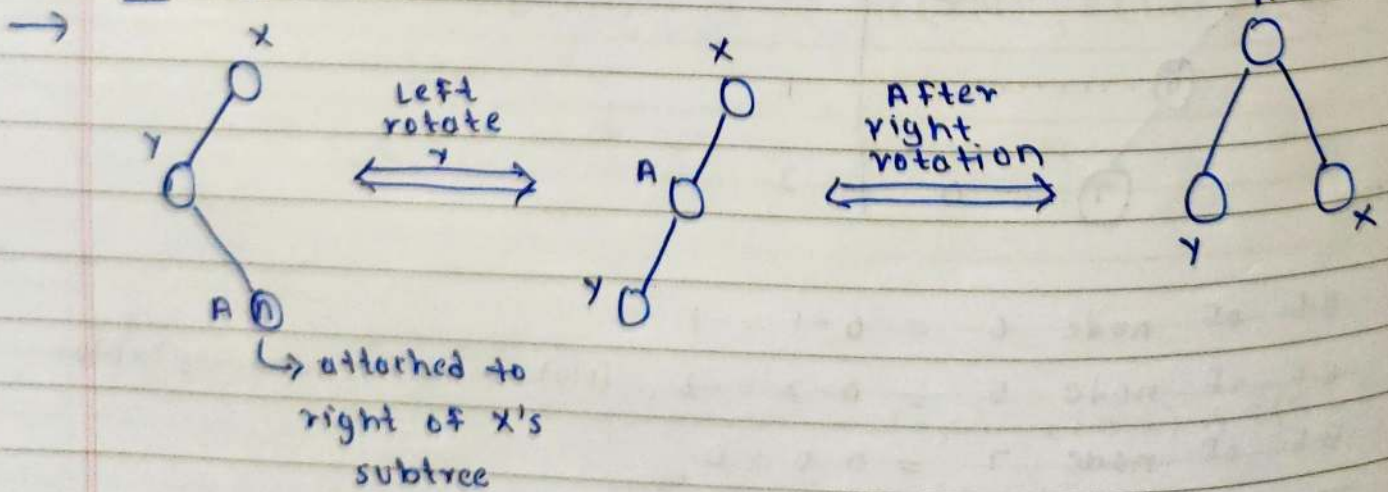 →
X
Y
A n
↳ attached to
right of X's
subtree
Left
rotate
Y
X
A
Y
After
right
rotation
Y
X